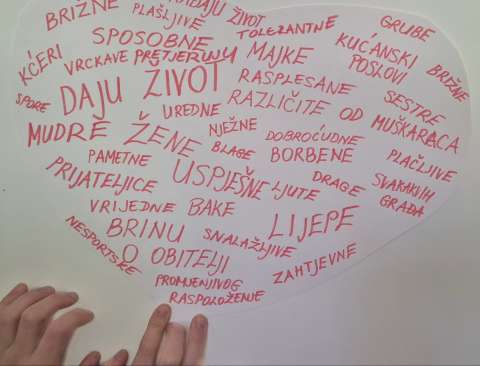 BRIŽNE
PLAŠLJIVE
ŽIVOT
TOLERANTNE
GRUBE
KĆERI
SPOSOBNE
VRCKAVE
PRETJERUJU
MAJKE
KUĆANSKI
POSLOVI
BRIŽNE
SPORE
DAJU ŽIVOT
RASPLESANE
UREDNE
RAZLIČITE OD MUŠKARACA
SESTRE
MUDRE
ŽENE
NJEŽNE
BLAGE
DOBROĆUDNE
BORBENE
PLAČLJIVE
PAMETNE
PRIJATELJICE
USPJEŠNE
LJUTE
DRAGE
SVAKAKVIH
GRAĐA
VRIJEDNE
BAKE
LIJEPE
NESPORTSKE
BRINU
O OBITELJI
SNALAŽLJIVE
ZAHTJEVNE
PROMJENJIVOG
RASPOLOŽENJE